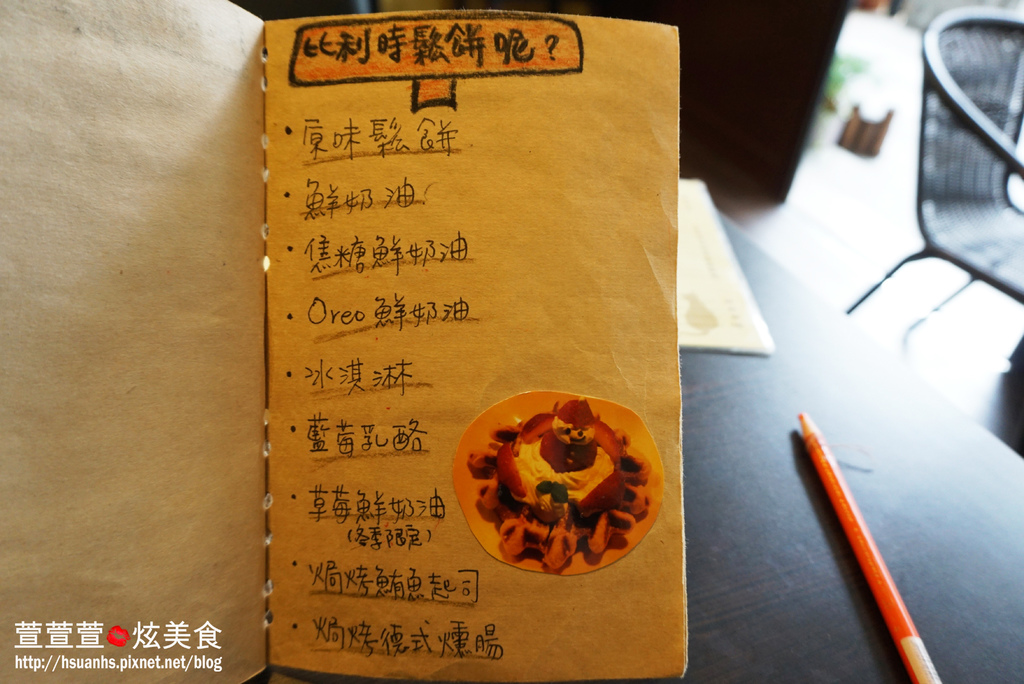 比利時鬆餅呢？
• 原味鬆餅
• 鮮奶油
• 焦糖鮮奶油
• Oreo 鮮奶油
• 冰淇淋
• 藍莓乳酪
• 草莓鮮奶油
(冬季限定)
• 焗烤鮪魚起司
• 焗烤德式燻腸
萱萱萱 炫美食
http://hsuanhs.pixnet.net/blog